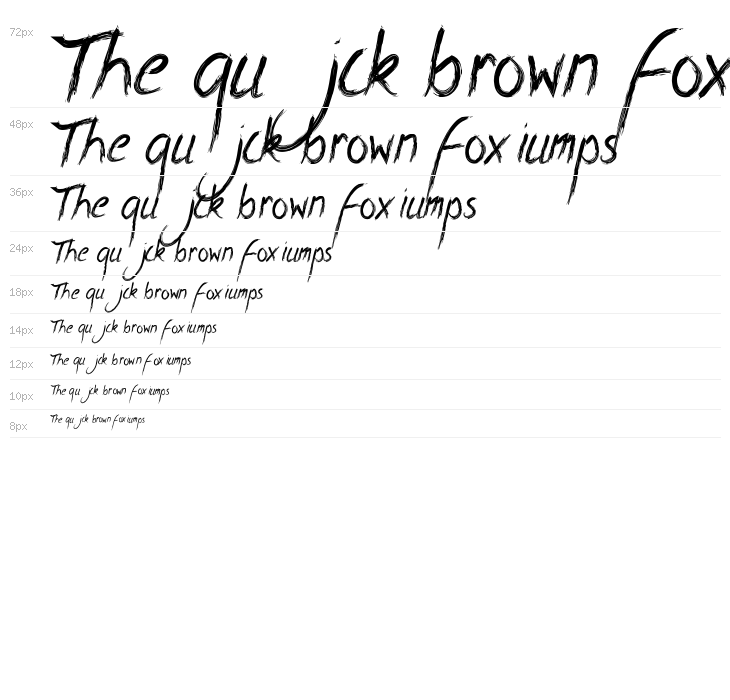 72px The qu jck brown fox
48px The qu jck brown fox iumps
36px The qu jck brown fox iumps
24px The qu jck brown fox iumps
18px The qu jck brown fox iumps
14px The qu jck brown fox iumps
12px The qu jck brown fox iumps
10px The qu jck brown fox iumps
8px The qu jck brown fox iumps